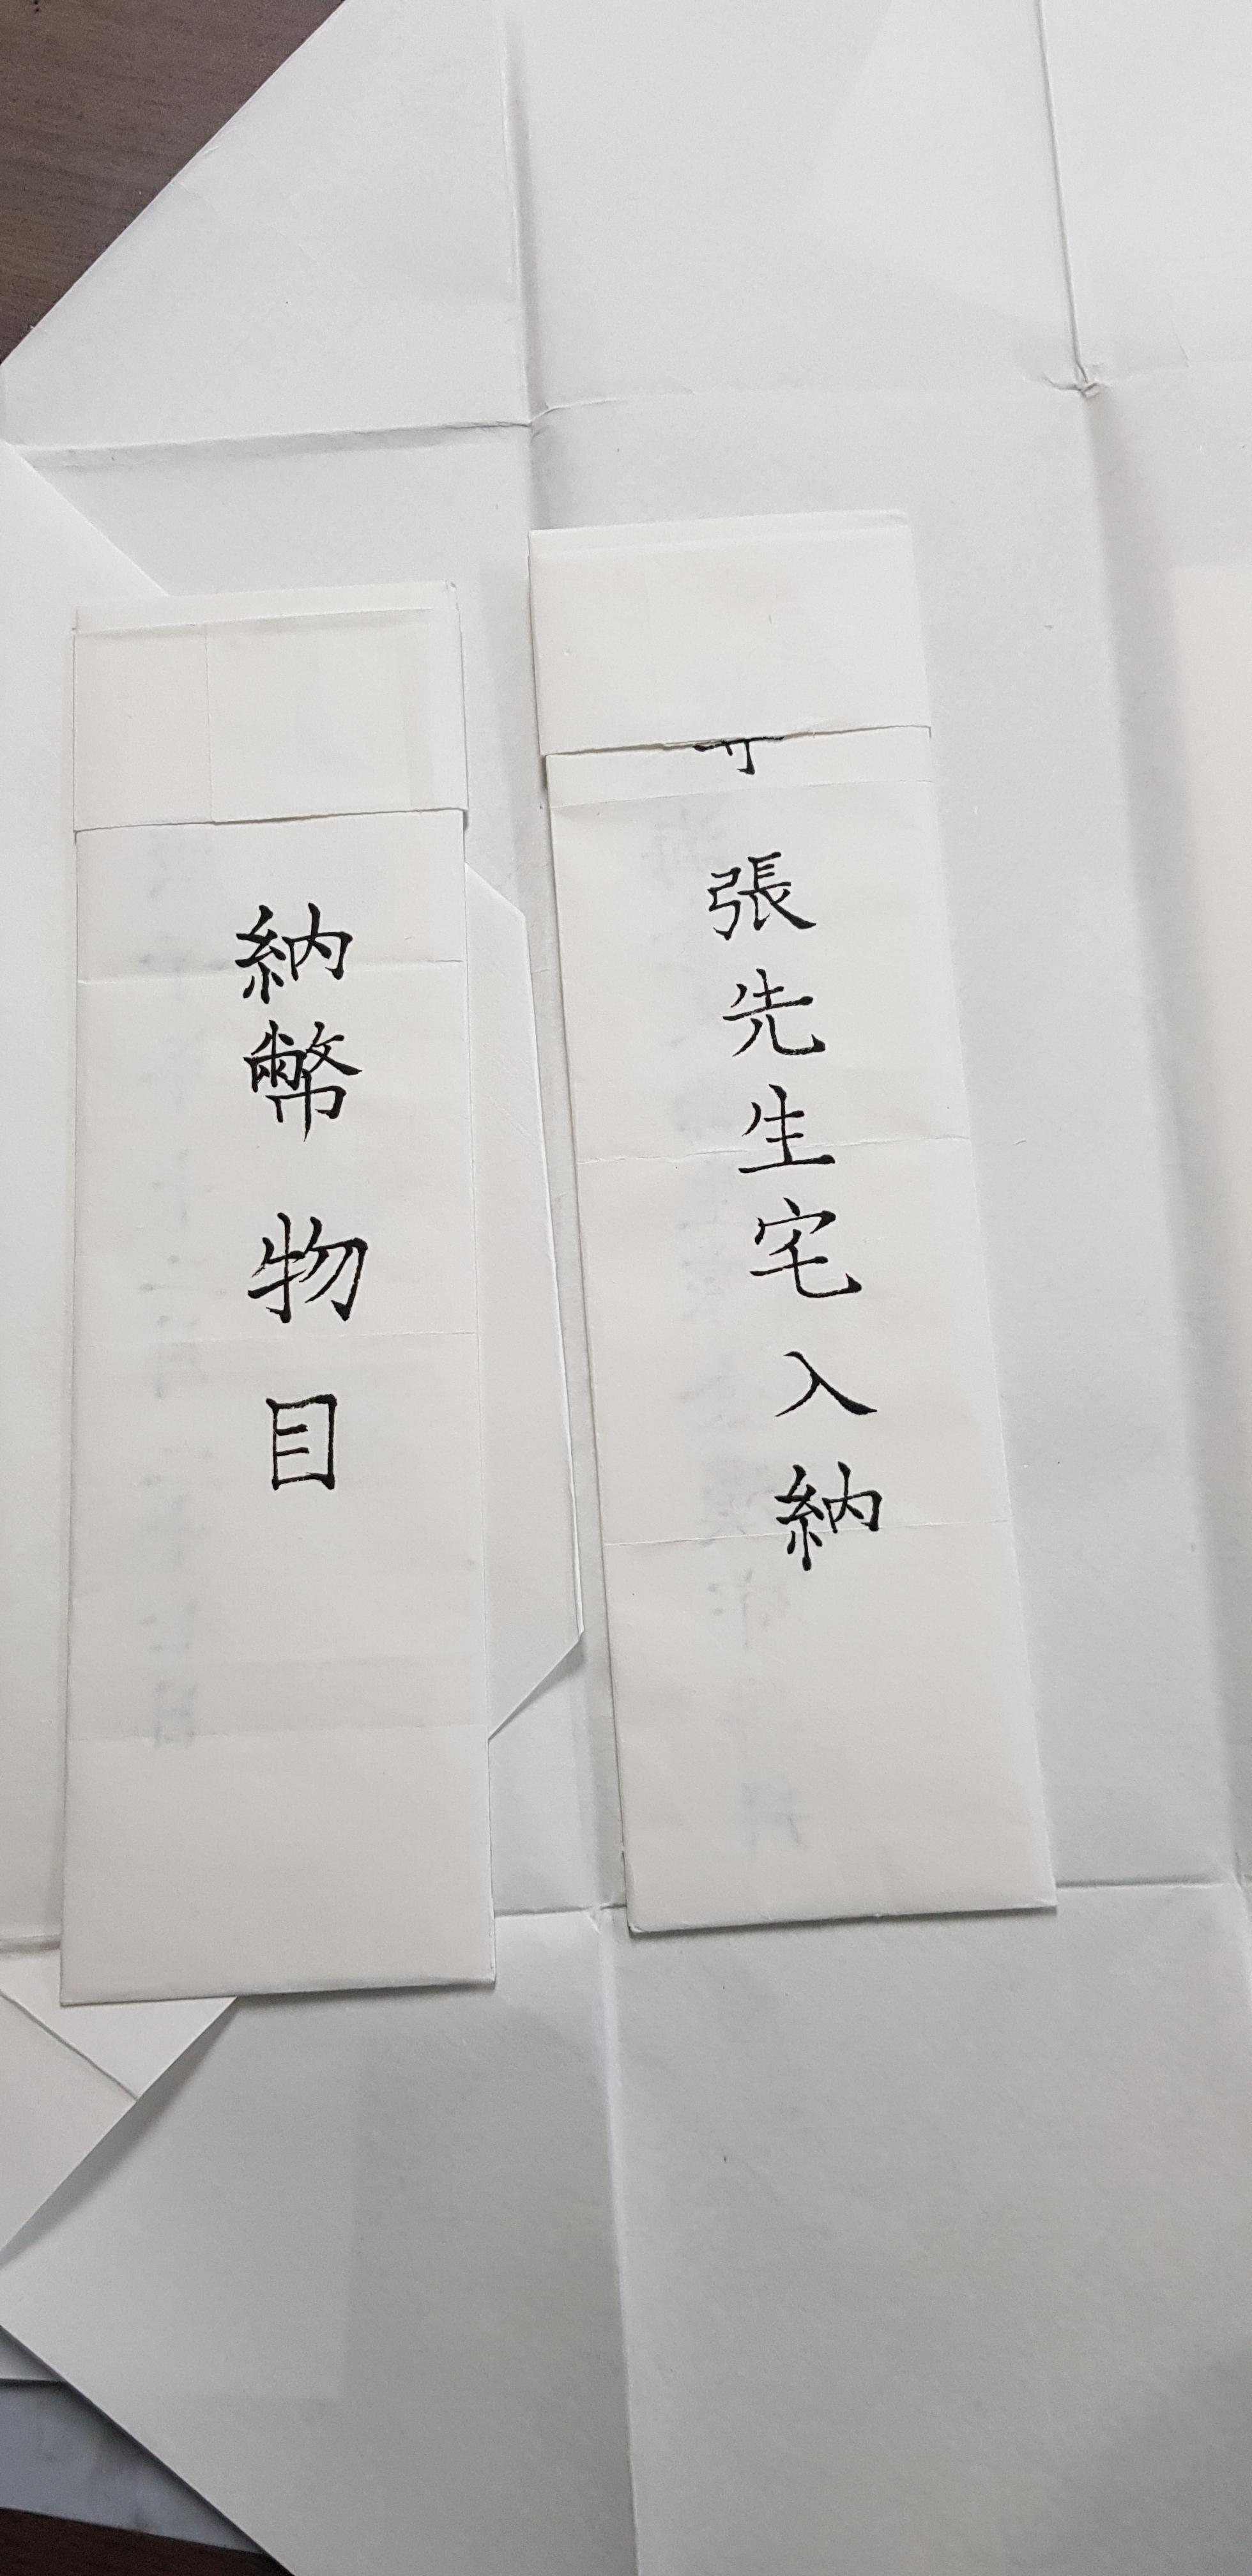 張先生宅入納
納幣物目